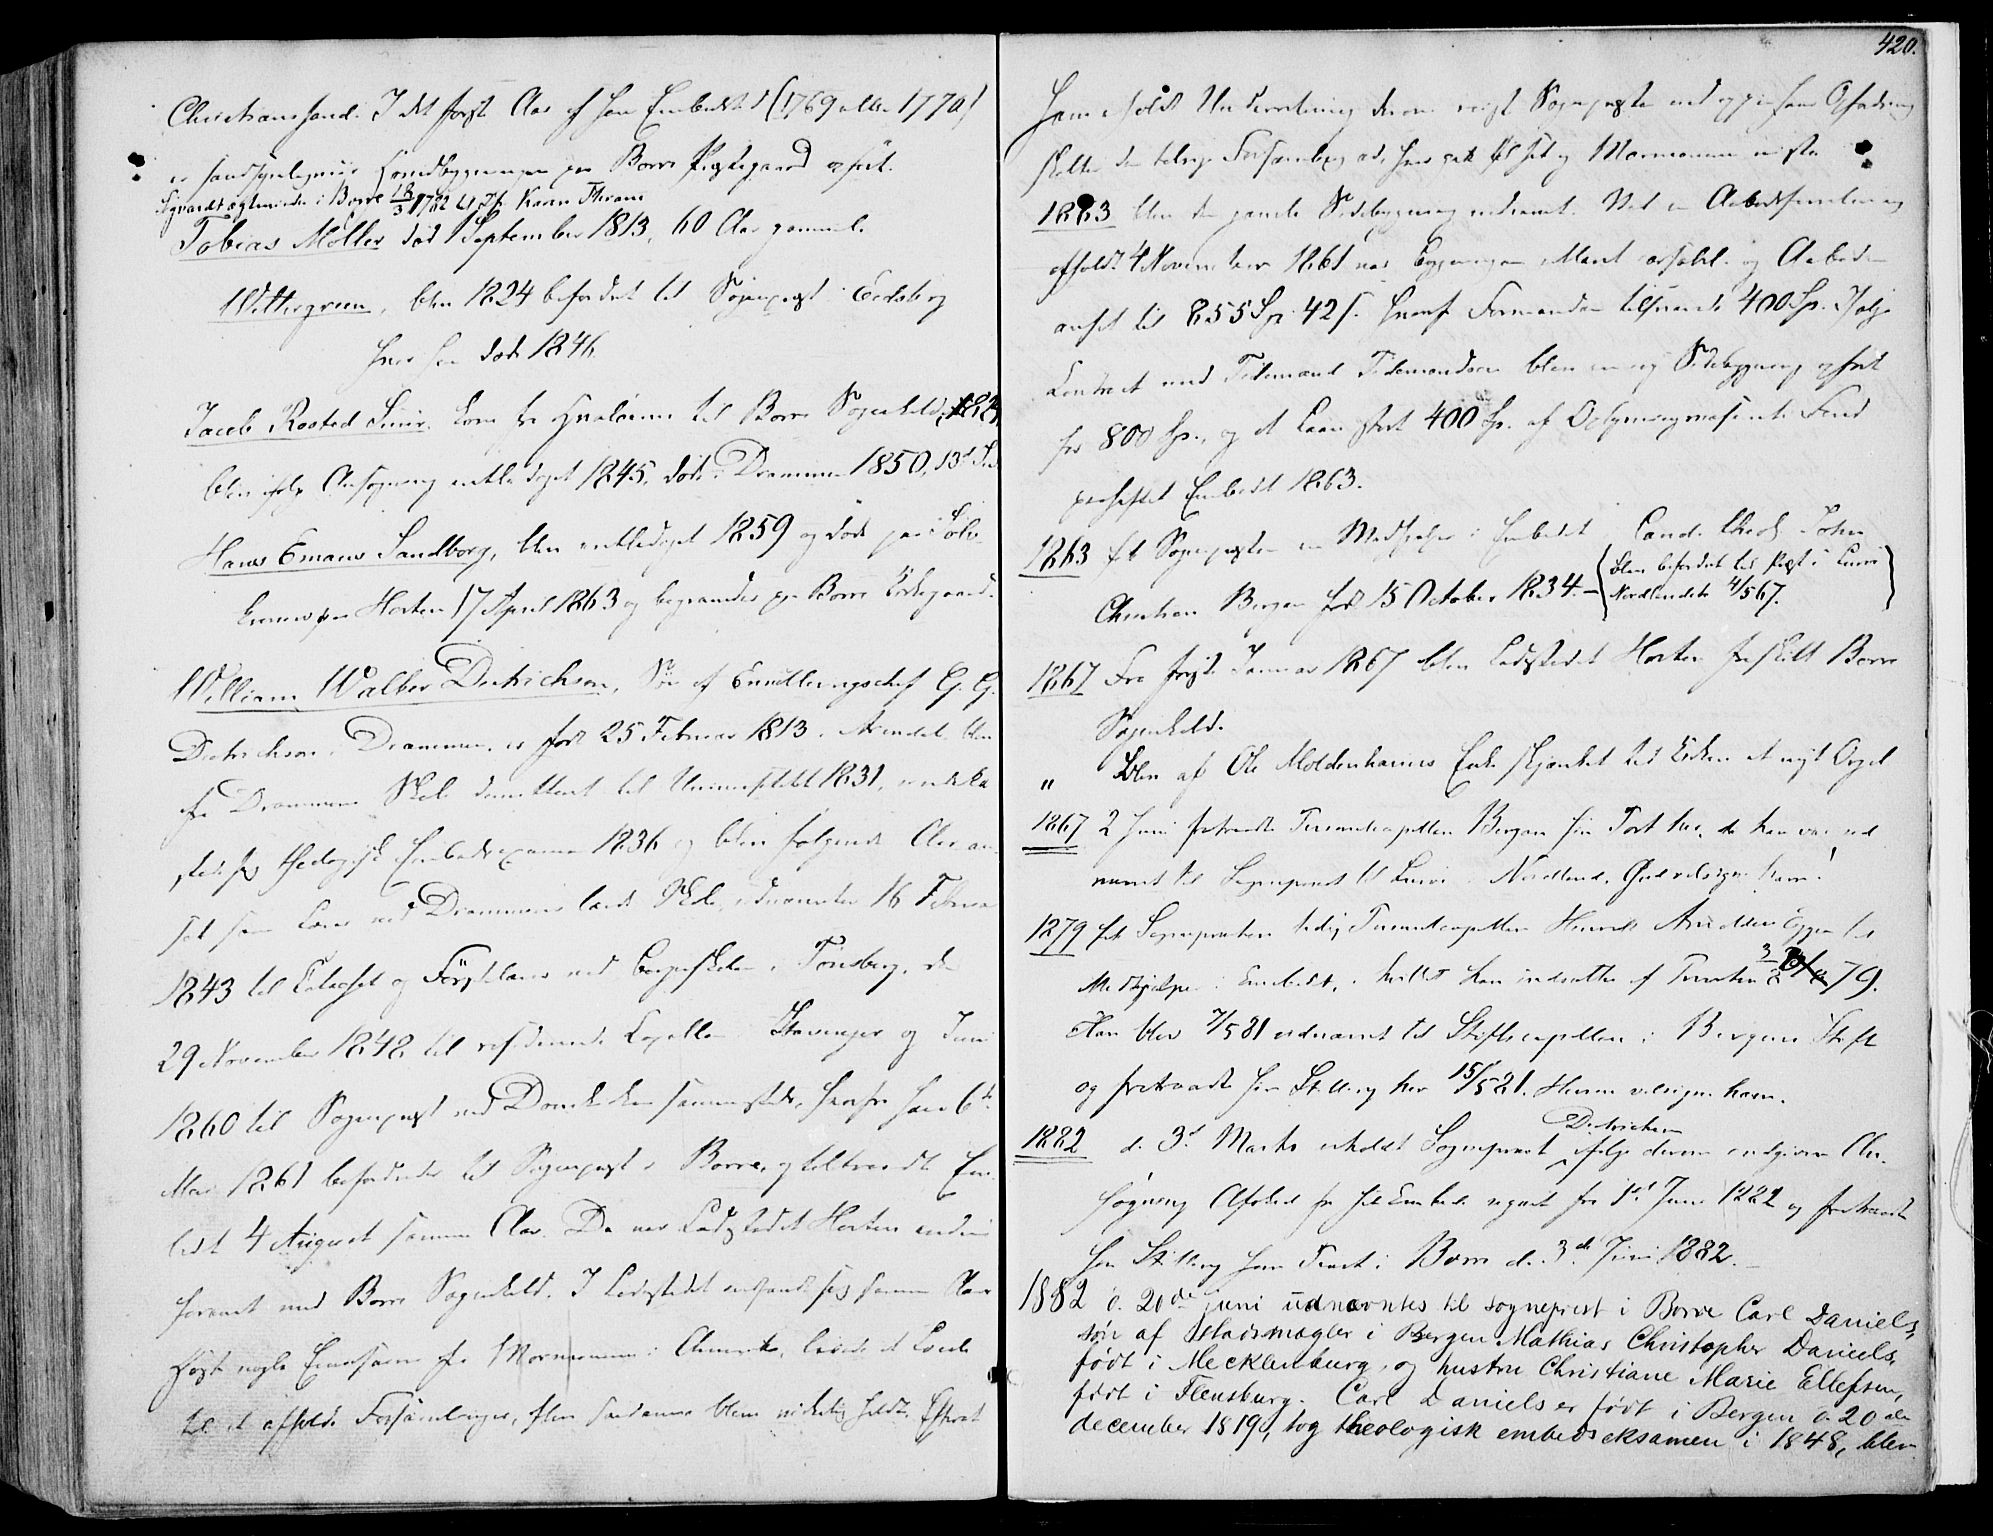 Christianssand. I det første Aar af hans Embedstid (1769 eller 1770)
er sandsynligviis Hovedbygningen paa Borre Præstegaard opført.
i Borre 18/3 1782 til Jfr Karen Thrane
Tobias Møller død 1 September 1813, 60 Aar gammel.
Wettergreen, blev 1824 befordret til Sognepræst i Eidsberg
hvor han døde 1846
Jacob Rosted Siur. kom fra Hvaløerne til Borre Sognekald,
blev ifølge Ansøgning entlediget 1845, døde i Drammen 1850, 13de
Hans Emaus Sandborg, blev entlediget 1859 og døde paa
Horten 17 April 1863 og begravedes paa Borre Kirkegaard.
William Walber Dietrichson, Søn af Enrulleringschef G. G.
Dietrichson i Drammen, er født 25 Februar 1813 i Arendal. blev
fra Drammens Skole demitteret til Universitetet 1831, underka-
stede sig theologisk Embedsexamen 1836 og blev følgende Aar an-
sat som Lærer ved Drammens lærde Skole, udnævntes 16 Februar
1843 til Catechet og Førstelærer ved Borgerskolen i Tønsberg, den
29 November 1848 til residerende Capellan i Stavanger og Juni
1860 til Sognepræst ved Domkirken sammesteds, hvorfra han 6te
Mai 1861 befordredes til Sognepræst i Borre, og tiltraadte Em-
bedet 4 August samme Aar. Da var Ladestedet Horten endnu
forenet med Borre Sognekald. I Ladestedet indfandt sig samme Aar
nogle Emissærer fra Mormonerne i Amerika, leiede et Locale
til at afholde Forsamlinger, flere saadanne bleve virkelig holdte. Efterat
420.
han erholdt Underretning derom Sognepræsten
skilte den talrige Forsamling ad, og Mormonerne
1863 blev den gamle Sidebygning nedrevet. Ved en Aabodsforretning
afholdt 4 November 1861 var Bygningen og Aaboden
ansat til 855 Sp. 42 s. hvoraf Formanden tilsvarede 400 Sp. Ifølge
Contract med Tidemand Tidemandsen blev en ny Sidebygning opført
for 800 Sp., og et Laan stort 400 Sp. af Oplysningsvæsenets Fond
paaheftet Embedet 1863.
1863 fik Sognepræsten en Medhjælper i Embedet Cand. theol. John
Christian Bergan født 15 October 1834. — (blev befordret til Præst i Lurø
Nordlandet 4/5 67.)
1867 Fra første Januar 1867 blev Ladestedet Horten fraskilt Borre
Sognekald.
„ Blev af Ole Moldenhauers Enke skjænket til Kirken et nyt Orgel
1867 2 Juni fratraadte Personelcapellan Bergan sin Post her, da han var ud-
nævnt til Sogneprest til Lurø i Nordland. Gud velsigne ham!
1879 fik Sognepresten tidlig Personelcapellan Henrik Arnoldus til
Medhjælper i Embedet, i hvilket han indsattes af Provsten 3/8 79.
Han blev 7/5 81 udnævnt til Stiftscapellan i Bergens Stift
og fratraadte sin Stilling her 15/5 81. Herren velsigne ham.
Dietrichson
1882 d. 3d Marts erholdt Sogneprest ifølge derom indgiven An-
søgning Afsked fra sit Embede regnet fra 1st Juni 1882 og fratraadte
sin Stilling som Prest i Borre d. 3de Juni 1882. —
1882 d. 20de juni udnævntes til sogneprest i Borre Carl Daniels,
søn af stadsmægler i Bergen Mathias Christopher Daniels,
født i Mecklenburg, og hustru Christiane Marie Ellefsen,
født i Flensburg. Carl Daniels er født i Bergen d. 20de
december 1819, tog theologisk embedseksamen i 1848, blev